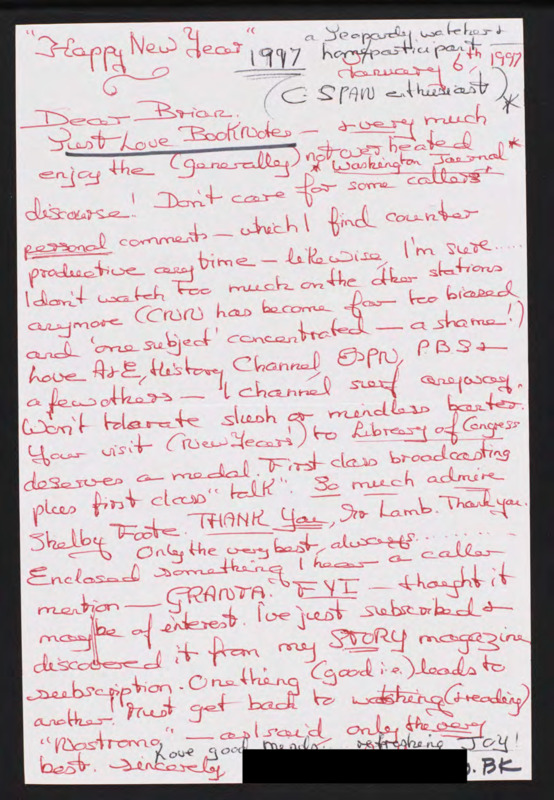 "Happy New Year"
1997
a Jeopardy watcher &
home participant
January 6th, 1997
(C-SPAN enthusiast) *
Dear Brian.
Just Love BookNotes – & very much
enjoy the (generally) not over heated
* "Washington Journal" *
discourse! Don't care for some callers'
personal comments – which I find counter
productive any time – likewise, I'm sure.....
I don't watch too much on the other stations
anymore (CNN has become far too biased
and 'one subject' concentrated – a shame!)
Love A&E, History Channel, ESPN, P.B.S &
a few others – I channel surf anyway.
Won't tolerate slush or mindless banter.
Your visit (New Years!) to Library of Congress
deserves a medal. First class broadcasting
plus first class "talk". So much admire
Shelby Foote. THANK You, Mr Lamb. Thank you.
Only the very best, always..........
Enclosed something I hear a caller
mention – GRANTA. FYI – thought it
maybe of interest. I've just subscribed &
discovered it from my STORY magazine
subscription. One thing (good i.e.) leads to
another! Must get back to watching (& reading)
"Nostromo" – as I said, only the very
best. Sincerely
Love good minds. refreshing Joy!
BK